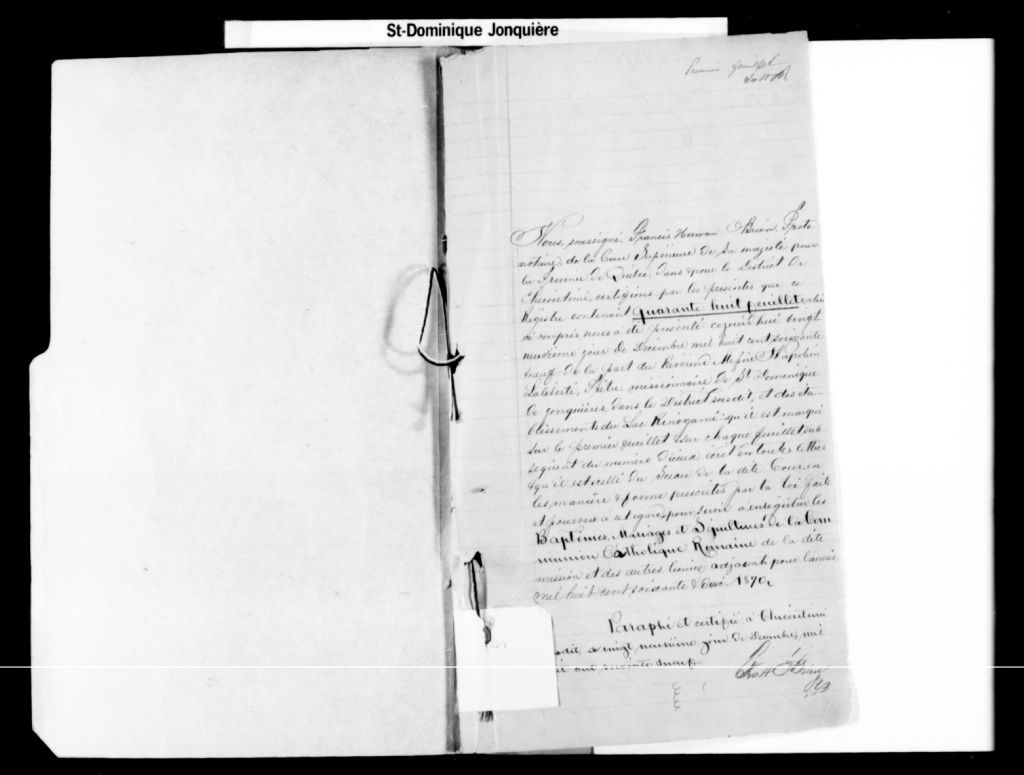 St-Dominique Jonquière
Premier feuillet
Nous, soussigné, Francis Hernan O'Brien, Proto
notaire, de la Cour Supérieure de Sa majesté pour
la Province de Québec, dans & pour le District de
Chicoutimi, certifions par les présentes que ce
Régistre contenant quarante huit feuillets,
ci compris nous a été présenté cejourd'hui vingt
neuvième jour de Décembre mil huit cent soixante
& neuf de la part du Révérend Messire Napoléon
Prêtre missionnaire de St Dominique
de Jonquières, dans le District susdit, et des éta-
blissements du Lac Kinogami qu'il est marqué
sur le premier feuillet & sur chaque feuillet sub-
séquent du numéro d'iceux écrit en toutes lettres
& qu'il est scellé du Sceau de la dite Cour, en
les manière & forme prescrites par la loi faite
et pourvue à cet égard, pour servir à enrégistrer les
Baptêmes, Mariages et Sépultures de la Com-
munion Catholique Romaine de la dite
mission et des autres lieux adjacents pour l'année
mil huit cent soixante & dix 1870.
Paraphé et certifié, à Chicoutimi
ce vingt neuvième jour de Décembre, mil
cent soixante & neuf.